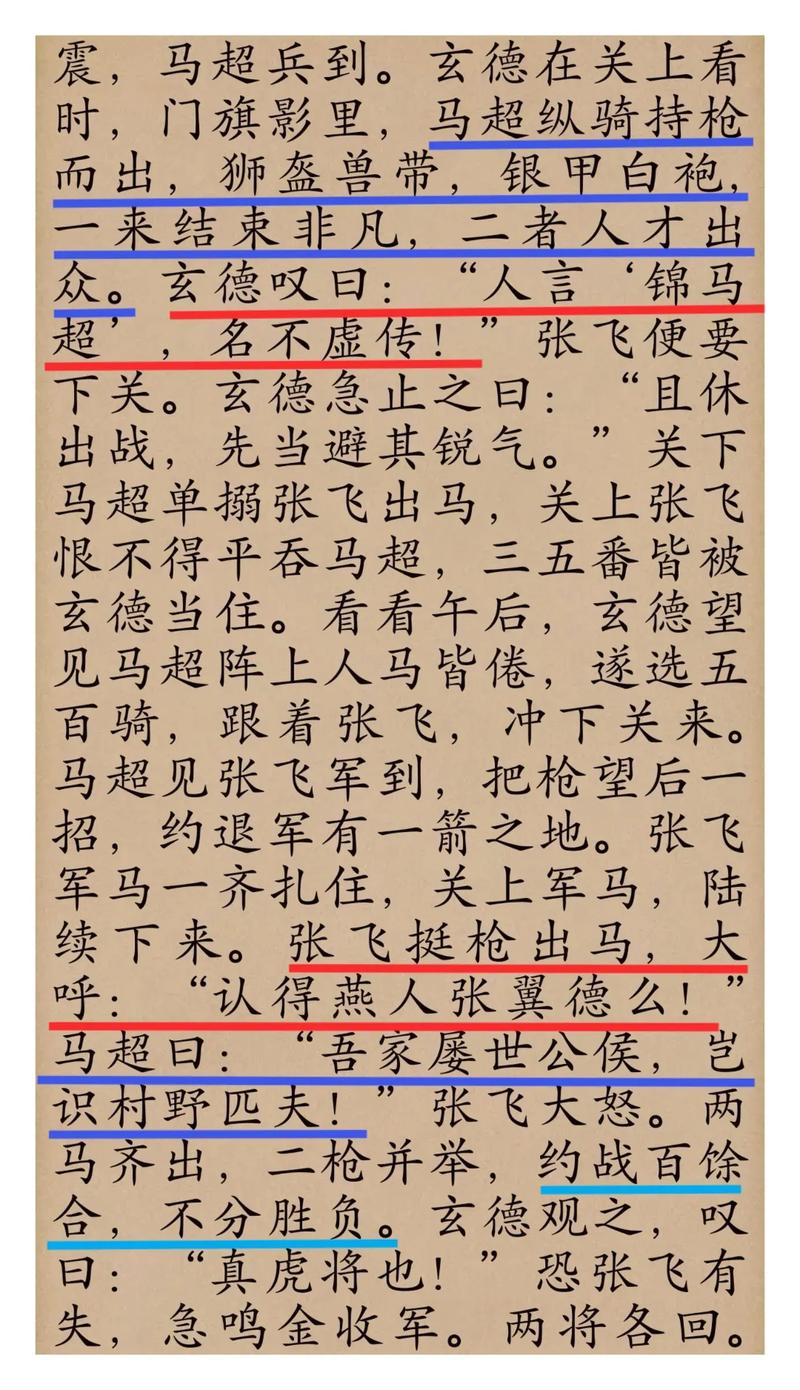 震，马超兵到。玄德在关上看
时，门旗影里，马超纵骑持枪
而出，狮盔兽带，银甲白袍，
一来结束非凡，二者人才出
众。玄德叹曰：“人言‘锦马
超’，名不虚传！”张飞便要
下关。玄德急止之曰：“且休
出战，先当避其锐气。”关下
马超单搦张飞出马，关上张飞
恨不得平吞马超，三五番皆被
玄德当住。看看午后，玄德望
见马超阵上人马皆倦，遂选五
百骑，跟着张飞，冲下关来。
马超见张飞军到，把枪望后一
招，约退军有一箭之地。张飞
军马一齐扎住，关上军马，陆
续下来。张飞挺枪出马，大
呼：“认得燕人张翼德么！”
马超曰：“吾家屡世公侯，岂
识村野匹夫！”张飞大怒。两
马齐出，二枪并举，约战百馀
合，不分胜负。玄德观之，叹
曰：“真虎将也！”恐张飞有
失，急鸣金收军。两将各回。